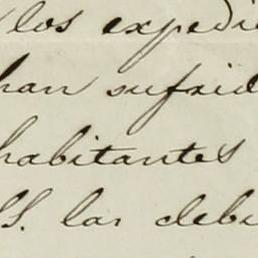 los expedi
han sufrid
habitantes
SS. las debi